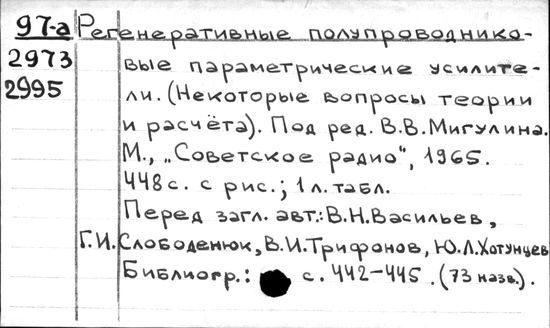 97-а Регенеративные полупроводнико-
2973 вые параметрические усилите-
2995 ли. (Некоторые вопросы теории
и расчёта). Под ред. В.В.Мигулина.
М., „Советское радио", 1965.
448 с. с рис.; 1 л. табл.
Перед загл. авт.: В.Н.Васильев,
Г.И.Слободенюк, В.И.Трифонов, Ю.Л.Хотунцев
Библиогр.: с. 442-445. (73 назв.).